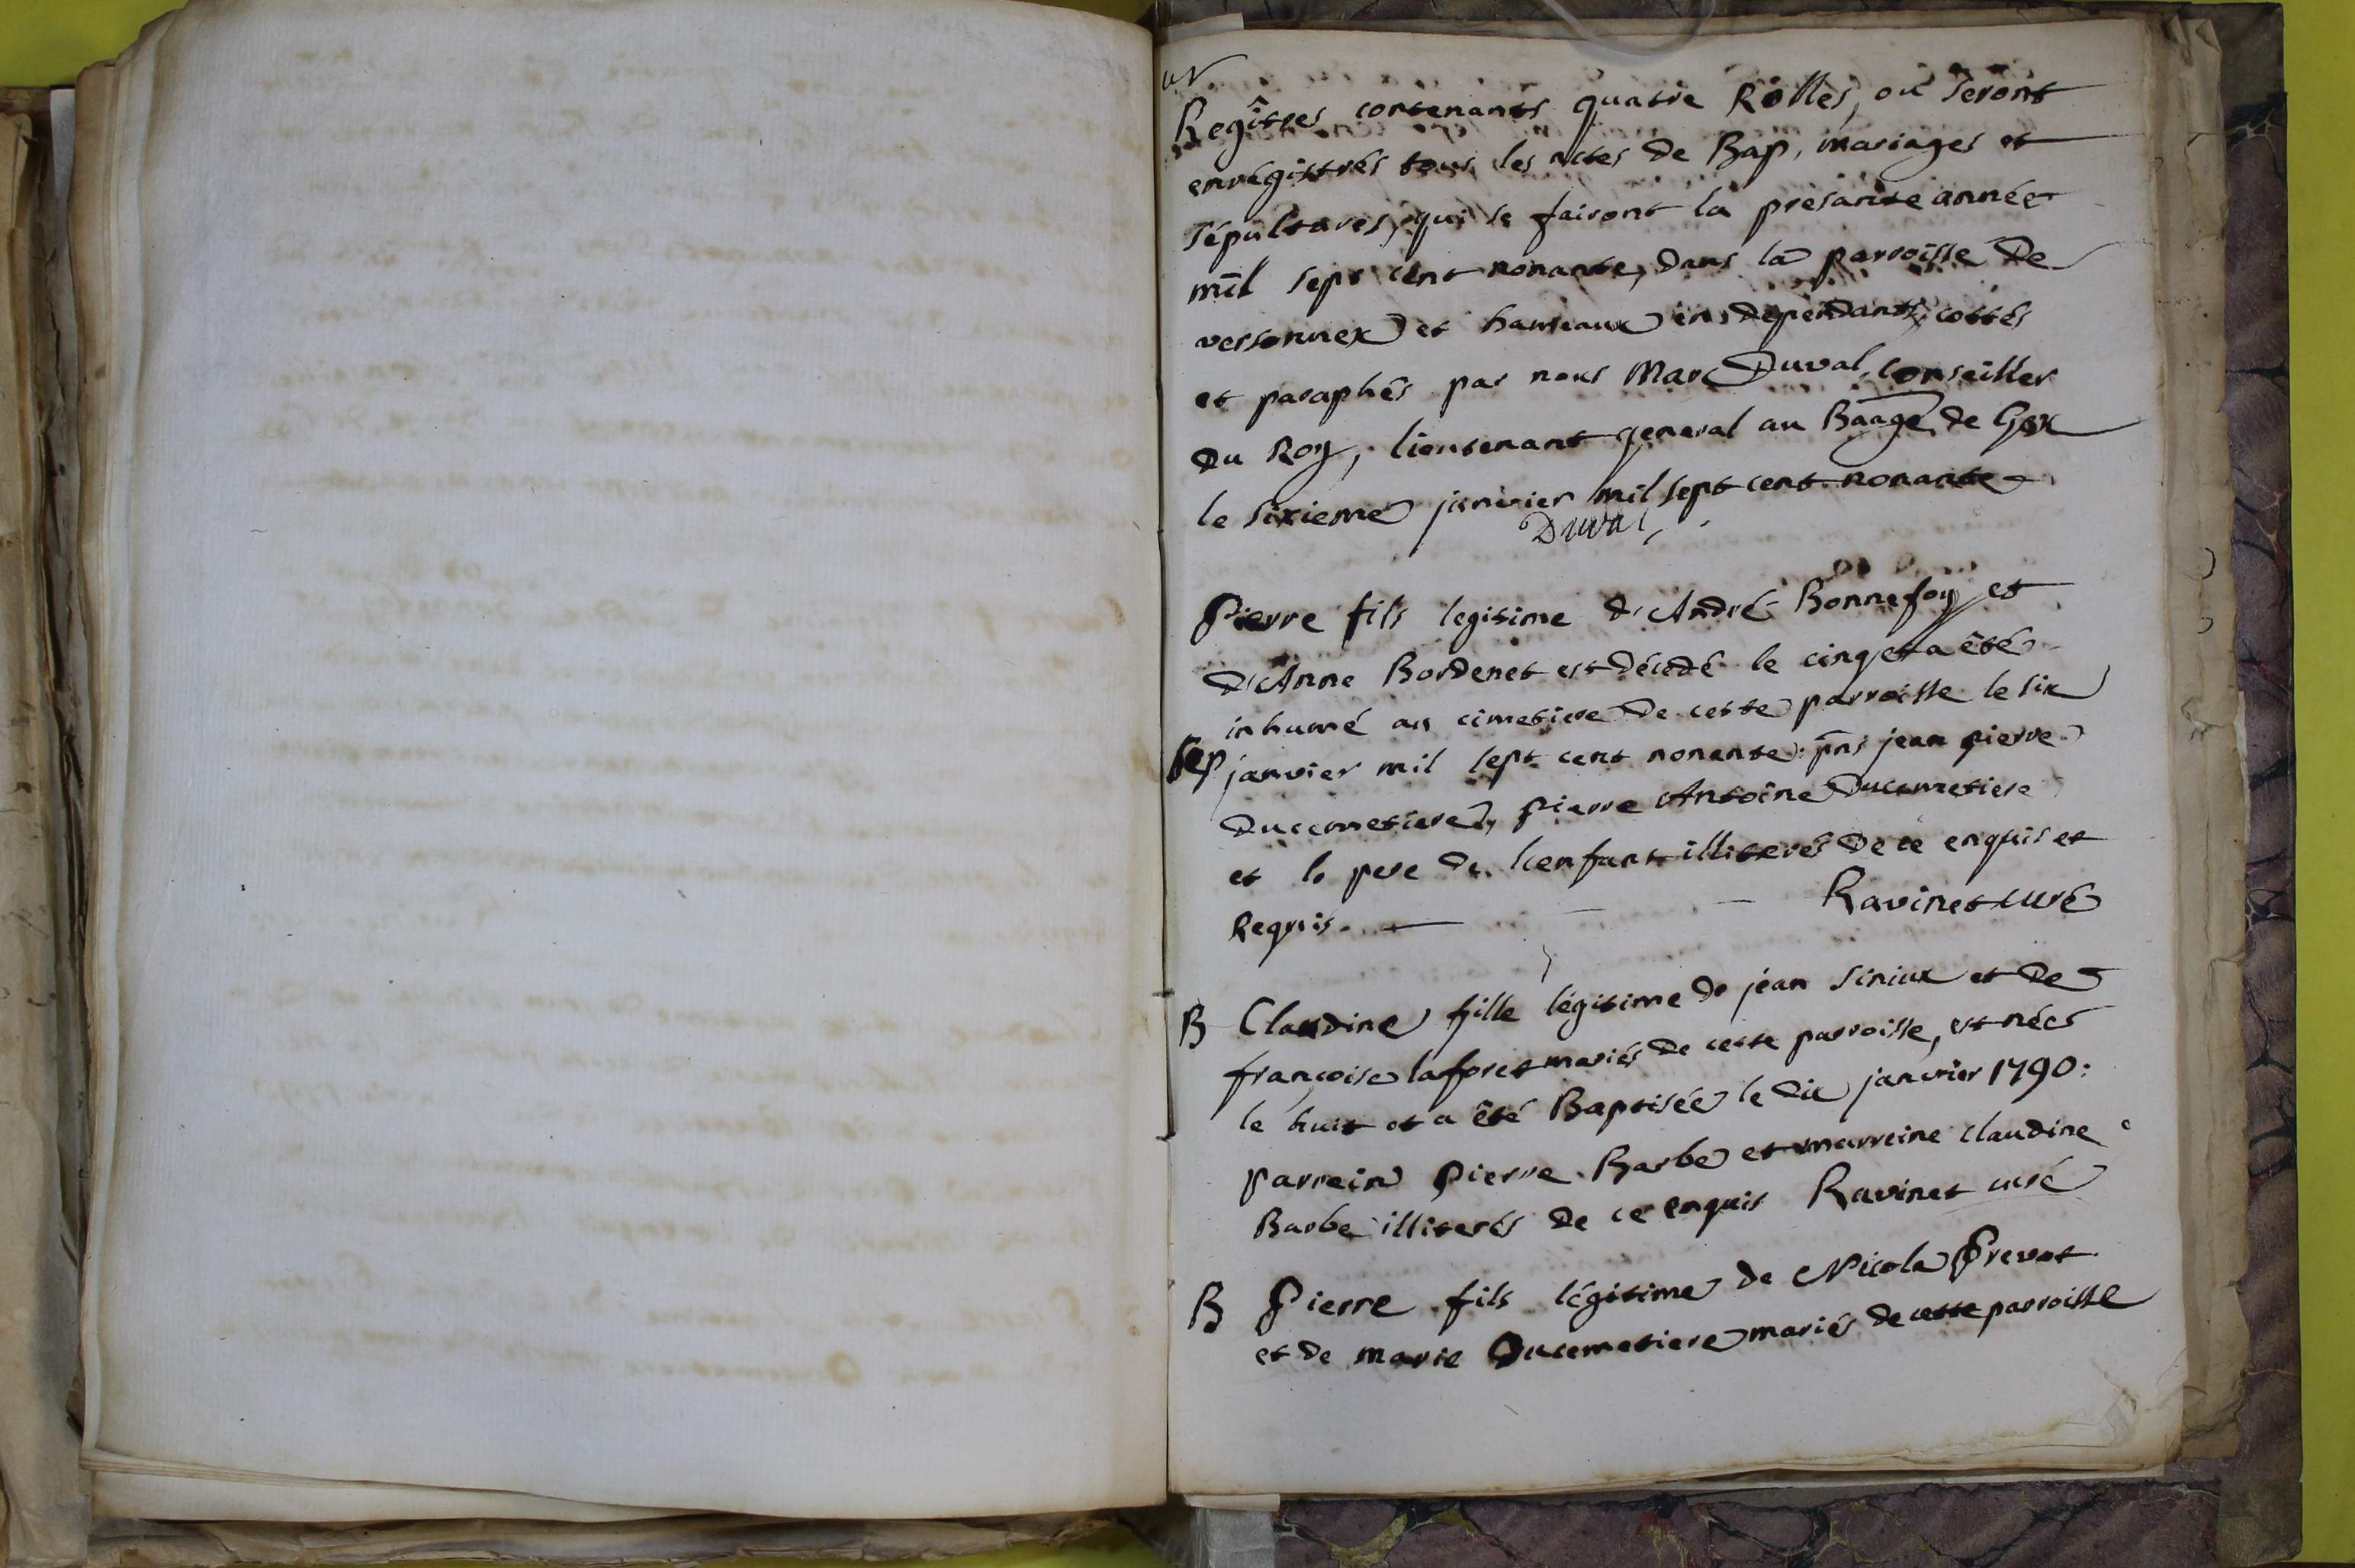 un
Regîtres contenants quatre Rôlles, où seront
enrégistrés tous les actes de Bap, mariages et
sépultures, qui se fairont la présante année
mil sept cent nonante, dans la parroisse De
versonnex et hameaux en dependants, cottés
et paraphés par nous Marc Duval, Conseiller
Du Roy, lieutenant general au Baage de Gex
le sixieme janvier mil sept cent nonante
Duval
Pierre fils legitime d'André Bonnefoy et
D'Anne Bordenet est Décedé le cinq et a êté
inhumé au cimetiere De cette parroisse le six
Sep janvier mil sept cent nonante. pns jean pierre
Ducemetiere, pierre Antoine Ducemetiere
et le pere de l'enfant illiterés De ce enquis et
Requis. Ravinet curé
B Claudine fille légitime de jean Siniux et De
françoise laforet mariés De cette parroisse, est née
le huit et a êté Baptisée le Dix janvier 1790:
parrein Pierre Barbe et marreine claudine
Barbe illiterés De ce enquis Ravinet curé
B Pierre fils légitime de Nicola Prevot
et De marie Ducemetiere mariés De cette parroisse